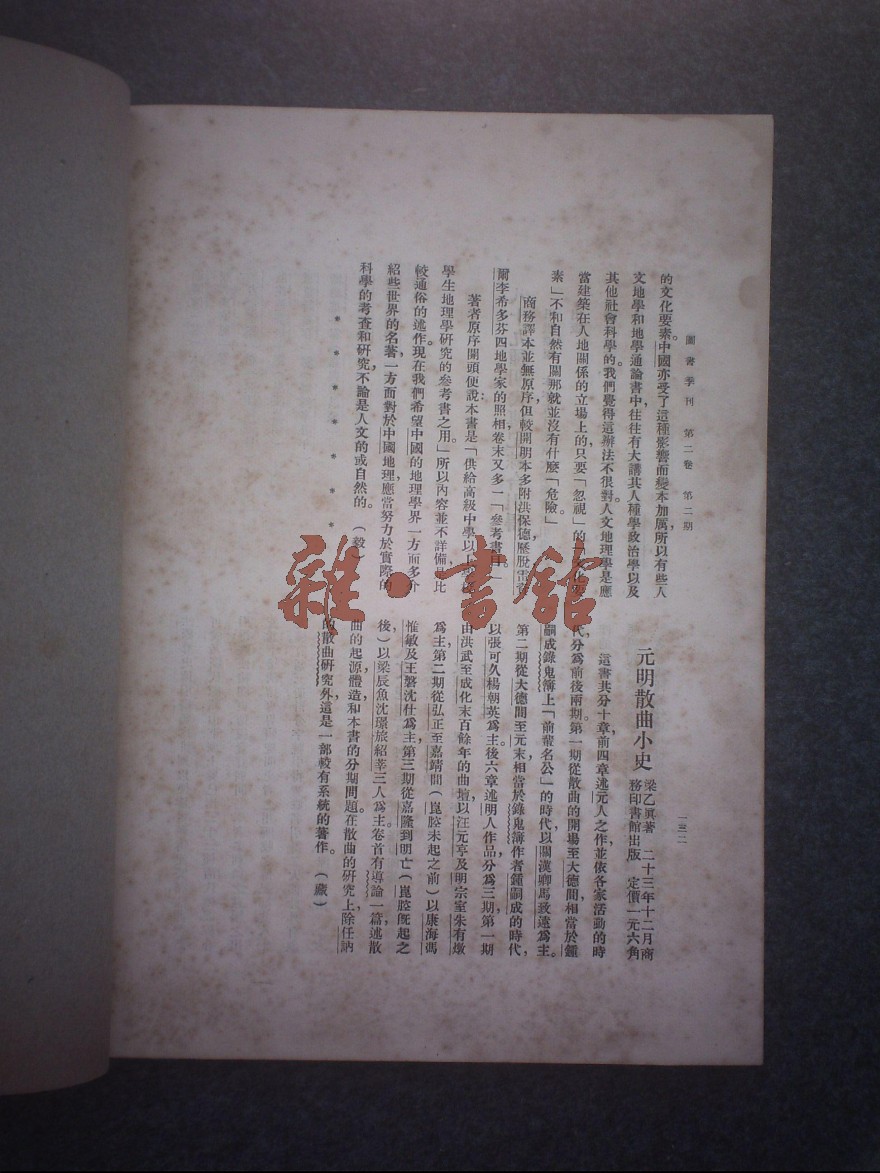 圖書季刊 第二卷 第二期
一三二
的文化要素。中國亦受了這種影響而變本加厲，所以有些人
文地學和地學通論書中，往往有大講其人種學政治學以及
其他社會科學的。我們覺得這辦法不很對，人文地理學是應
當建築在人地關係的立場上的，只要「忽視」的「文化要
素」不和自然有關，那就並沒有什麼「危險。」
商務譯本並無原序，但較開明本多附洪保德歷脫雷
爾李希多芬四地學家的照相，卷末又多一「參考書目。」
著者原序開頭便說：本書是「供給高級中學以上
學生地理學研究的參考書之用。」所以內容並不詳備，是比
較通俗的述作。現在我們希望中國的地理學界一方面多介
紹些世界的名著，一方面對於中國地理，應當努力於實際的
科學的考查和研究，不論是人文的或自然的。 （毅）
* * * * * * *
元明散曲小史 梁乙眞著 二十三年十二月商
務印書館出版 定價一元六角
這書共分十章，前四章述元人之作，並依各家活動的時
代，分爲前後兩期。第一期從散曲的開場至大德間，相當於鍾
嗣成錄鬼簿上「前輩名公」的時代，以關漢卿馬致遠爲主。
第二期從大德間至元末，相當於錄鬼簿作者鍾嗣成的時代，
以張可久楊朝英爲主。後六章述明人作品，分爲三期，第一期
由洪武至成化末百餘年的曲壇，以汪元亨及明宗室朱有燉
爲主，第二期從弘正至嘉靖間（崑腔未起之前）以康海馮
惟敏及王磐沈仕爲主，第三期從嘉隆到明亡（崑腔旣起之
後）以梁辰魚沈璟旅紹莘三人爲主。卷首有導論一篇，述散
曲的起源，體造和本書的分期問題。在散曲的研究上，除任訥
的散曲研究外，這是一部較有系統的著作。 （嚴）
雜·書館